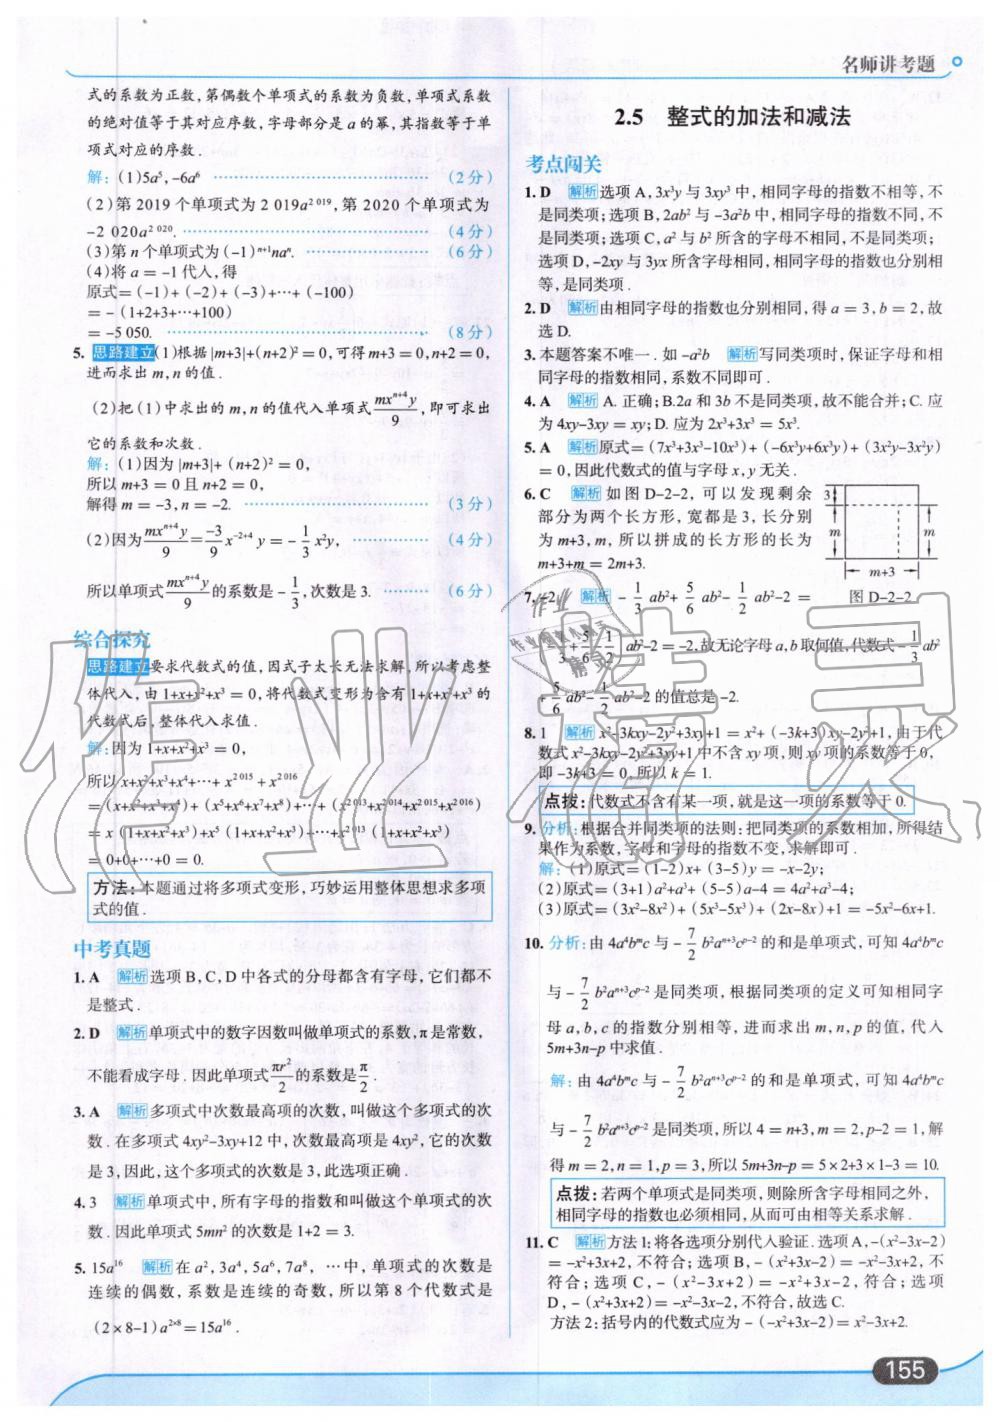 名师讲考题
式的系数为正数,第偶数个单项式的系数为负数,单项式系数
的绝对值等于其对应序数,字母部分是 a 的幂,其指数等于单
项式对应的序数.
解:(1)5a⁵,-6a⁶ (2分)
(2)第 2019 个单项式为 2 019a² ⁰¹⁹,第 2020 个单项式为
-2 020a² ⁰²⁰. (4分)
(3)第 n 个单项式为 (-1)ⁿ⁺¹naⁿ. (6分)
(4)将 a=-1 代入,得
原式=(-1)+(-2)+(-3)+…+(-100)
=-(1+2+3+…+100)
=-5 050. (8分)
5. 思路建立 (1)根据 |m+3|+(n+2)²=0,可得 m+3=0,n+2=0,
进而求出 m,n 的值.
(2)把(1)中求出的 m,n 的值代入单项式 mxⁿ⁺⁴y/9,即可求出
它的系数和次数.
解:(1)因为 |m+3|+(n+2)²=0,
所以 m+3=0 且 n+2=0,
解得 m=-3,n=-2. (3分)
(2)因为 mxⁿ⁺⁴y/9 = -3/9 x⁻²⁺⁴y=-1/3 x²y, (4分)
所以单项式 mxⁿ⁺⁴y/9 的系数是 -1/3,次数是 3. (6分)
综合探究
思路建立 要求代数式的值,因式子太长无法求解,所以考虑整
体代入,由 1+x+x²+x³=0,将代数式变形为含有 1+x+x²+x³ 的
代数式后,整体代入求值.
解:因为 1+x+x²+x³=0,
所以 x+x²+x³+x⁴+…+x² ⁰¹⁵+x² ⁰¹⁶
=(x+x²+x³+x⁴)+(x⁵+x⁶+x⁷+x⁸)+…+(x² ⁰¹³+x² ⁰¹⁴+x² ⁰¹⁵+x² ⁰¹⁶)
=x(1+x+x²+x³)+x⁵(1+x+x²+x³)+…+x² ⁰¹³(1+x+x²+x³)
=0+0+…+0=0.
方法:本题通过将多项式变形,巧妙运用整体思想求多项
式的值.
中考真题
1. A 解析 选项 B,C,D 中各式的分母都含有字母,它们都不
是整式.
2. D 解析 单项式中的数字因数叫做单项式的系数,π 是常数,
不能看成字母.因此单项式 πr²/2 的系数是 π/2.
3. A 解析 多项式中次数最高项的次数,叫做这个多项式的次
数.在多项式 4xy²-3xy+12 中,次数最高项是 4xy²,它的次数
是 3,因此,这个多项式的次数是 3,此选项正确.
4. 3 解析 单项式中,所有字母的指数和叫做这个单项式的次
数.因此单项式 5mn² 的次数是 1+2=3.
5. 15a¹⁶ 解析 在 a²,3a⁴,5a⁶,7a⁸,…中,单项式的次数是
连续的偶数,系数是连续的奇数,所以第 8 个代数式是
(2×8-1)a²ˣ⁸=15a¹⁶.
2.5 整式的加法和减法
考点闯关
1. D 解析 选项 A,3x³y 与 3xy³ 中,相同字母的指数不相等,不
是同类项;选项 B,2ab² 与 -3a²b 中,相同字母的指数不同,不
是同类项;选项 C,a² 与 b² 所含的字母不相同,不是同类项;
选项 D,-2xy 与 3yx 所含字母相同,相同字母的指数也分别相
等,是同类项.
2. D 解析 由相同字母的指数也分别相同,得 a=3,b=2,故
选 D.
3. 本题答案不唯一.如 -a²b 解析 写同类项时,保证字母和相
同字母的指数相同,系数不同即可.
4. A 解析 A. 正确;B.2a 和 3b 不是同类项,故不能合并;C. 应
为 4xy-3xy=xy;D. 应为 2x³+3x³=5x³.
5. A 解析 原式=(7x³+3x³-10x³)+(-6x³y+6x³y)+(3x²y-3x²y)
=0,因此代数式的值与字母 x,y 无关.
6. C 解析 如图 D-2-2,可以发现剩余
部分为两个长方形,宽都是 3,长分别
为 m+3,m,所以拼成的长方形的长为
m+3+m=2m+3.
3
m
m
m+3
图 D-2-2
7. -2 解析 -1/3 ab²+5/6 ab²-1/2 ab²-2=
(-1/3+5/6-1/2)ab²-2=-2,故无论字母 a,b 取何值,代数式 -1/3 ab²
+5/6 ab²-1/2 ab²-2 的值总是 -2.
8. 1 解析 x²-3kxy-2y²+3xy+1=x²+(-3k+3)xy-2y²+1,由于代
数式 x²-3kxy-2y²+3xy+1 中不含 xy 项,则 xy 项的系数等于 0,
即 -3k+3=0,所以 k=1.
点拨:代数式不含有某一项,就是这一项的系数等于 0.
9. 分析:根据合并同类项的法则:把同类项的系数相加,所得结
果作为系数,字母和字母的指数不变,求解即可.
解:(1)原式=(1-2)x+(3-5)y=-x-2y;
(2)原式=(3+1)a²+a³+(5-5)a-4=4a²+a³-4;
(3)原式=(3x²-8x²)+(5x³-5x³)+(2x-8x)+1=-5x²-6x+1.
10. 分析:由 4a⁴bᵐc 与 -7/2 b²aⁿ⁺³cᵖ⁻² 的和是单项式,可知 4a⁴bᵐc
与 -7/2 b²aⁿ⁺³cᵖ⁻² 是同类项,根据同类项的定义可知相同字
母 a,b,c 的指数分别相等,进而求出 m,n,p 的值,代入
5m+3n-p 中求值.
解:由 4a⁴bᵐc 与 -7/2 b²aⁿ⁺³cᵖ⁻² 的和是单项式,可知 4a⁴bᵐc
与 -7/2 b²aⁿ⁺³cᵖ⁻² 是同类项,所以 4=n+3,m=2,p-2=1,解
得 m=2,n=1,p=3,所以 5m+3n-p=5×2+3×1-3=10.
点拨:若两个单项式是同类项,则除所含字母相同之外,
相同字母的指数也必须相同,从而可由相等关系求解.
11. C 解析 方法 1:将各选项分别代入验证.选项 A,-(x²-3x-2)
=-x²+3x+2,不符合;选项 B,-(x²+3x-2)=-x²-3x+2,不
符合;选项 C,-(x²-3x+2)=-x²+3x-2,符合;选项
D,-(x²+3x+2)=-x²-3x-2,不符合,故选 C.
方法 2:括号内的代数式应为 -(-x²+3x-2)=x²-3x+2.
155
作业精灵